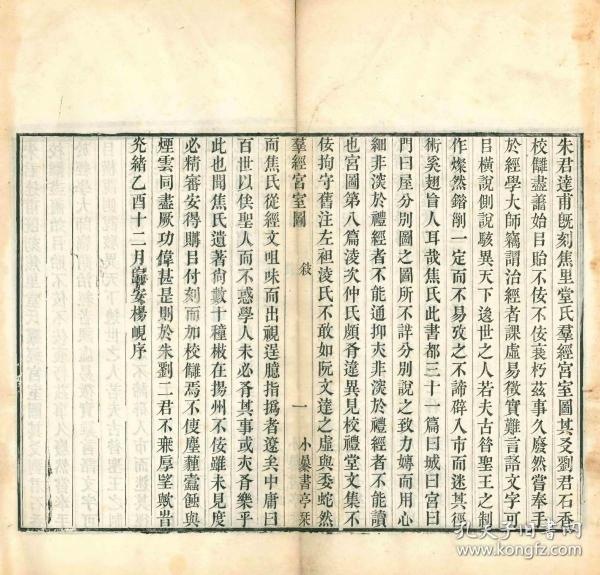 朱君達甫旣刻焦里堂氏羣經宮室圖其爻劉君石香
校讎盡譱始目貽不佞不佞衰朽茲事久廢然嘗奉手
於經學大師竊謂治經者課虛易徵實難言語文字可
目橫說側說駭異天下逡世之人若夫古昝聖王之制
作燦然鎝削一定而不易攷之不諦辟入市而迷其徑
術奚翅盲人耳哉焦氏此書都三十一篇曰城曰宮曰
門曰屋分別圖之圖所不詳分別說之致力嫥而用心
細非湥於禮經者不能通抑夾非湥於禮經者不能讀
也宮圖第八篇淩次仲氏頗肴違異見校禮堂文集不
佞拘守舊注左袒淩氏不敢如阮文達之虛與委蛇然
羣經宮室圖
敍
一
小嫏書亭栞
而焦氏從經文咀味而出視逞臆指撝者遼矣中庸曰
百世以俟聖人而不惑學人未必肴其事或夾肴樂乎
此也聞焦氏遺著尙數十種椒在揚州不佞雖未見度
必精審安得購目付刻而加校讎焉不使塵薶蠧蝕與
煙雲同盡厥功偉甚是則於朱劉二君不棶厚望歟旹
光緒乙酉十二月歸安楊峴序
孔夫子旧书网
www.kongfz.com